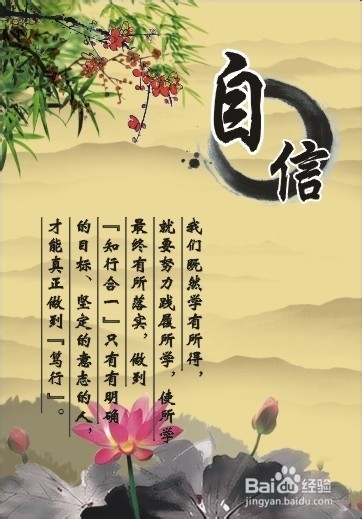 自信
我们既然学有所得，
就要努力践履所学，使所学
最终有所落实，做到
『知行合一』只有有明确
的目标、坚定的意志的人，
才能真正做到『笃行』。
Baidu经验
jingyan.baidu.com